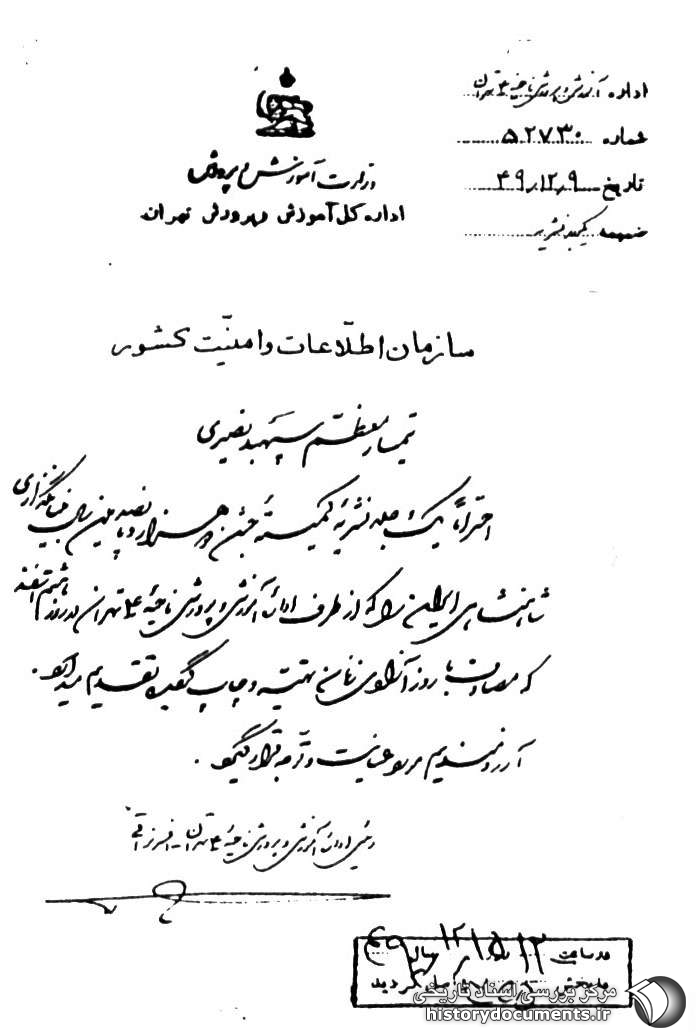 اداره آموزش و پرورش ناحیه ۴ تهران
شماره ۵۲۷۳۰
تاریخ ۴۹/۱۲/۹
ضمیمه یکجلد نشریه
وزارت آموزش و پرورش
اداره کل آموزش و پرورش تهران
سازمان اطلاعات و امنیت کشور
تیمسار معظم سپهبد نصیری
احتراماً یک جلد نشریهٔ کمیتهٔ جشن دو هزار و پانصدمین سال بنیانگذاری
شاهنشاهی ایران را که از طرف ادارهٔ آموزش و پرورش ناحیهٔ ۴ تهران در روز هشتم اسفند
که مصادف با روز آزادی زنان تهیه و چاپ گردیده تقدیم میدارد.
آرزومندیم مورد عنایت و توجه قرار گیرد.
رئیس ادارهٔ آموزش و پرورش ناحیهٔ ۴ تهران -
در ساعت روز ۱۲/۱۲ سال ۴۹
به بخش گردید
مرکز بررسی اسناد تاریخی
historydocuments.ir